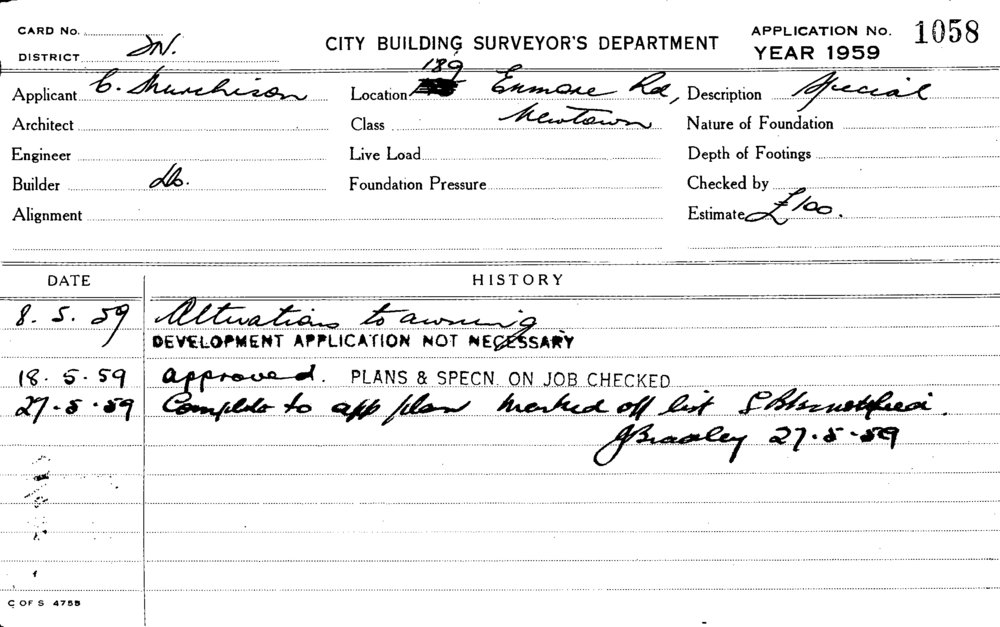 CARD No.
DISTRICT
CITY BUILDING SURVEYOR'S DEPARTMENT
APPLICATION No. 1058
YEAR 1959
Applicant C. Murchison
Location 189 Enmore Rd, Newtown
Description Special
Architect
Class
Nature of Foundation
Engineer
Live Load
Depth of Footings
Builder do.
Foundation Pressure
Checked by
Alignment
Estimate £100.
DATE HISTORY
8. 5. 59 Alterations to awning
DEVELOPMENT APPLICATION NOT NECESSARY
18. 5. 59 approved. PLANS & SPECN. ON JOB CHECKED
27. 5. 59 Complete to app plan Marked off list
JBradley 27.5.59
C OF S 475B